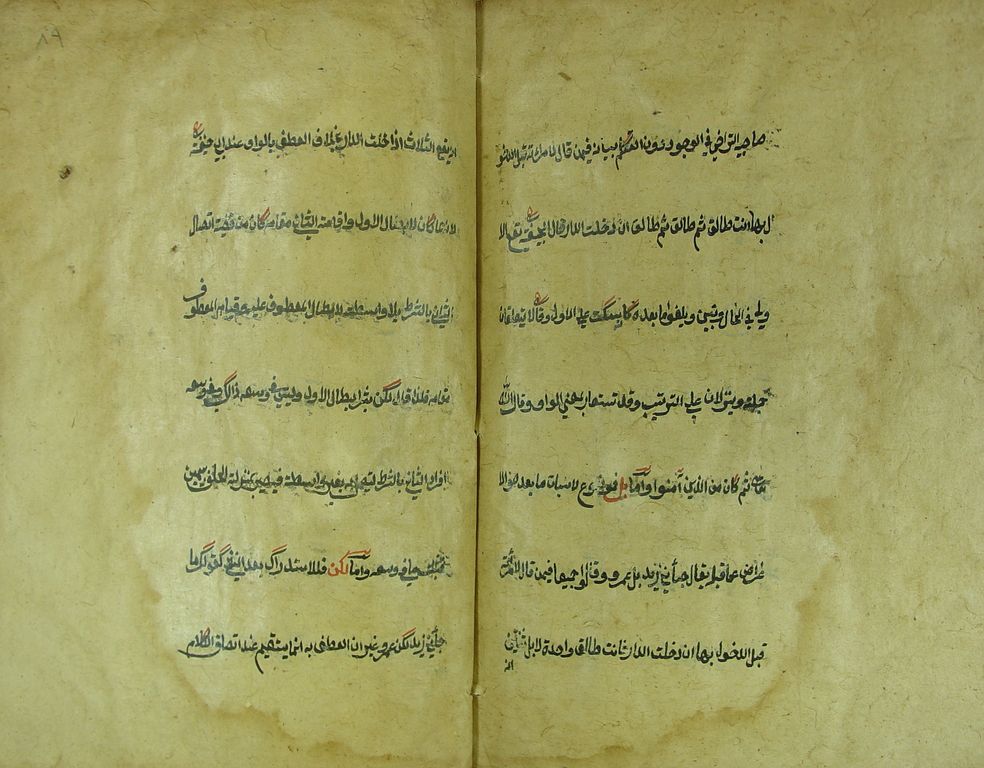 صاحبيه التراخي في الوجود دون التكلم بيانه فيمن قال لامراته قبل الدخو
ل بها انت طالق ثم طالق ثم طالق ان دخلت الدار قال ابو حنيفة يقع الا
ول في الحال وتبين ويلغو ما بعده كما سكت على الاول وقالا يتعلقان
جملة وينزلان على الترتيب وقد تستعار بمعنى الواو وقال الله
تعالى ثم كان من الذين آمنوا واما بل فموضوع لاثبات ما بعده والا
عراض عما قبله يقال جاءني زيد بل عمرو وقالوا جميعا فيمن قال لامراته
قبل الدخول بها ان دخلت الدار فانت طالق واحدة لا بل ثنتين
٨٩
انه يقع الثلاث اذا دخلت الدار بخلاف العطف بالواو عند ابي حنيفة
لانه لما كان لابطال الاول واقامة الثاني مقامه كان من قضيته اتصال
الثاني بالشرط بلا واسطة لابطال المعطوف عليه وقيام المعطوف
مقامه فلذا قال لكن بشرط ابطال الاول وليس في وسعه ذلك وفي وسعه
افراد الثاني بالشرط ليتصل به بغير واسطة فيصير بمنزلة الحلف بيمين
فيثبت ما في وسعه واما لكن فللاستدراك بعد النفي كقولك ما
جاءني زيد لكن عمرو غير ان العطف به انما يستقيم عند اتساق الكلام